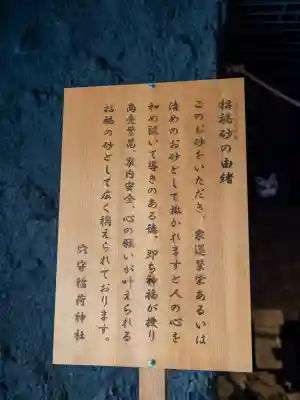 招福砂の由緒
このお砂をいただき、家運繁栄あるいは
清めのお砂として撒かれますと人の心を
和め頂いて導きのある徳、即ち神福が授り
商売繁昌、家内安全、心の願いが叶えられる
お福の砂として広く称えられております。
穴守稲荷神社